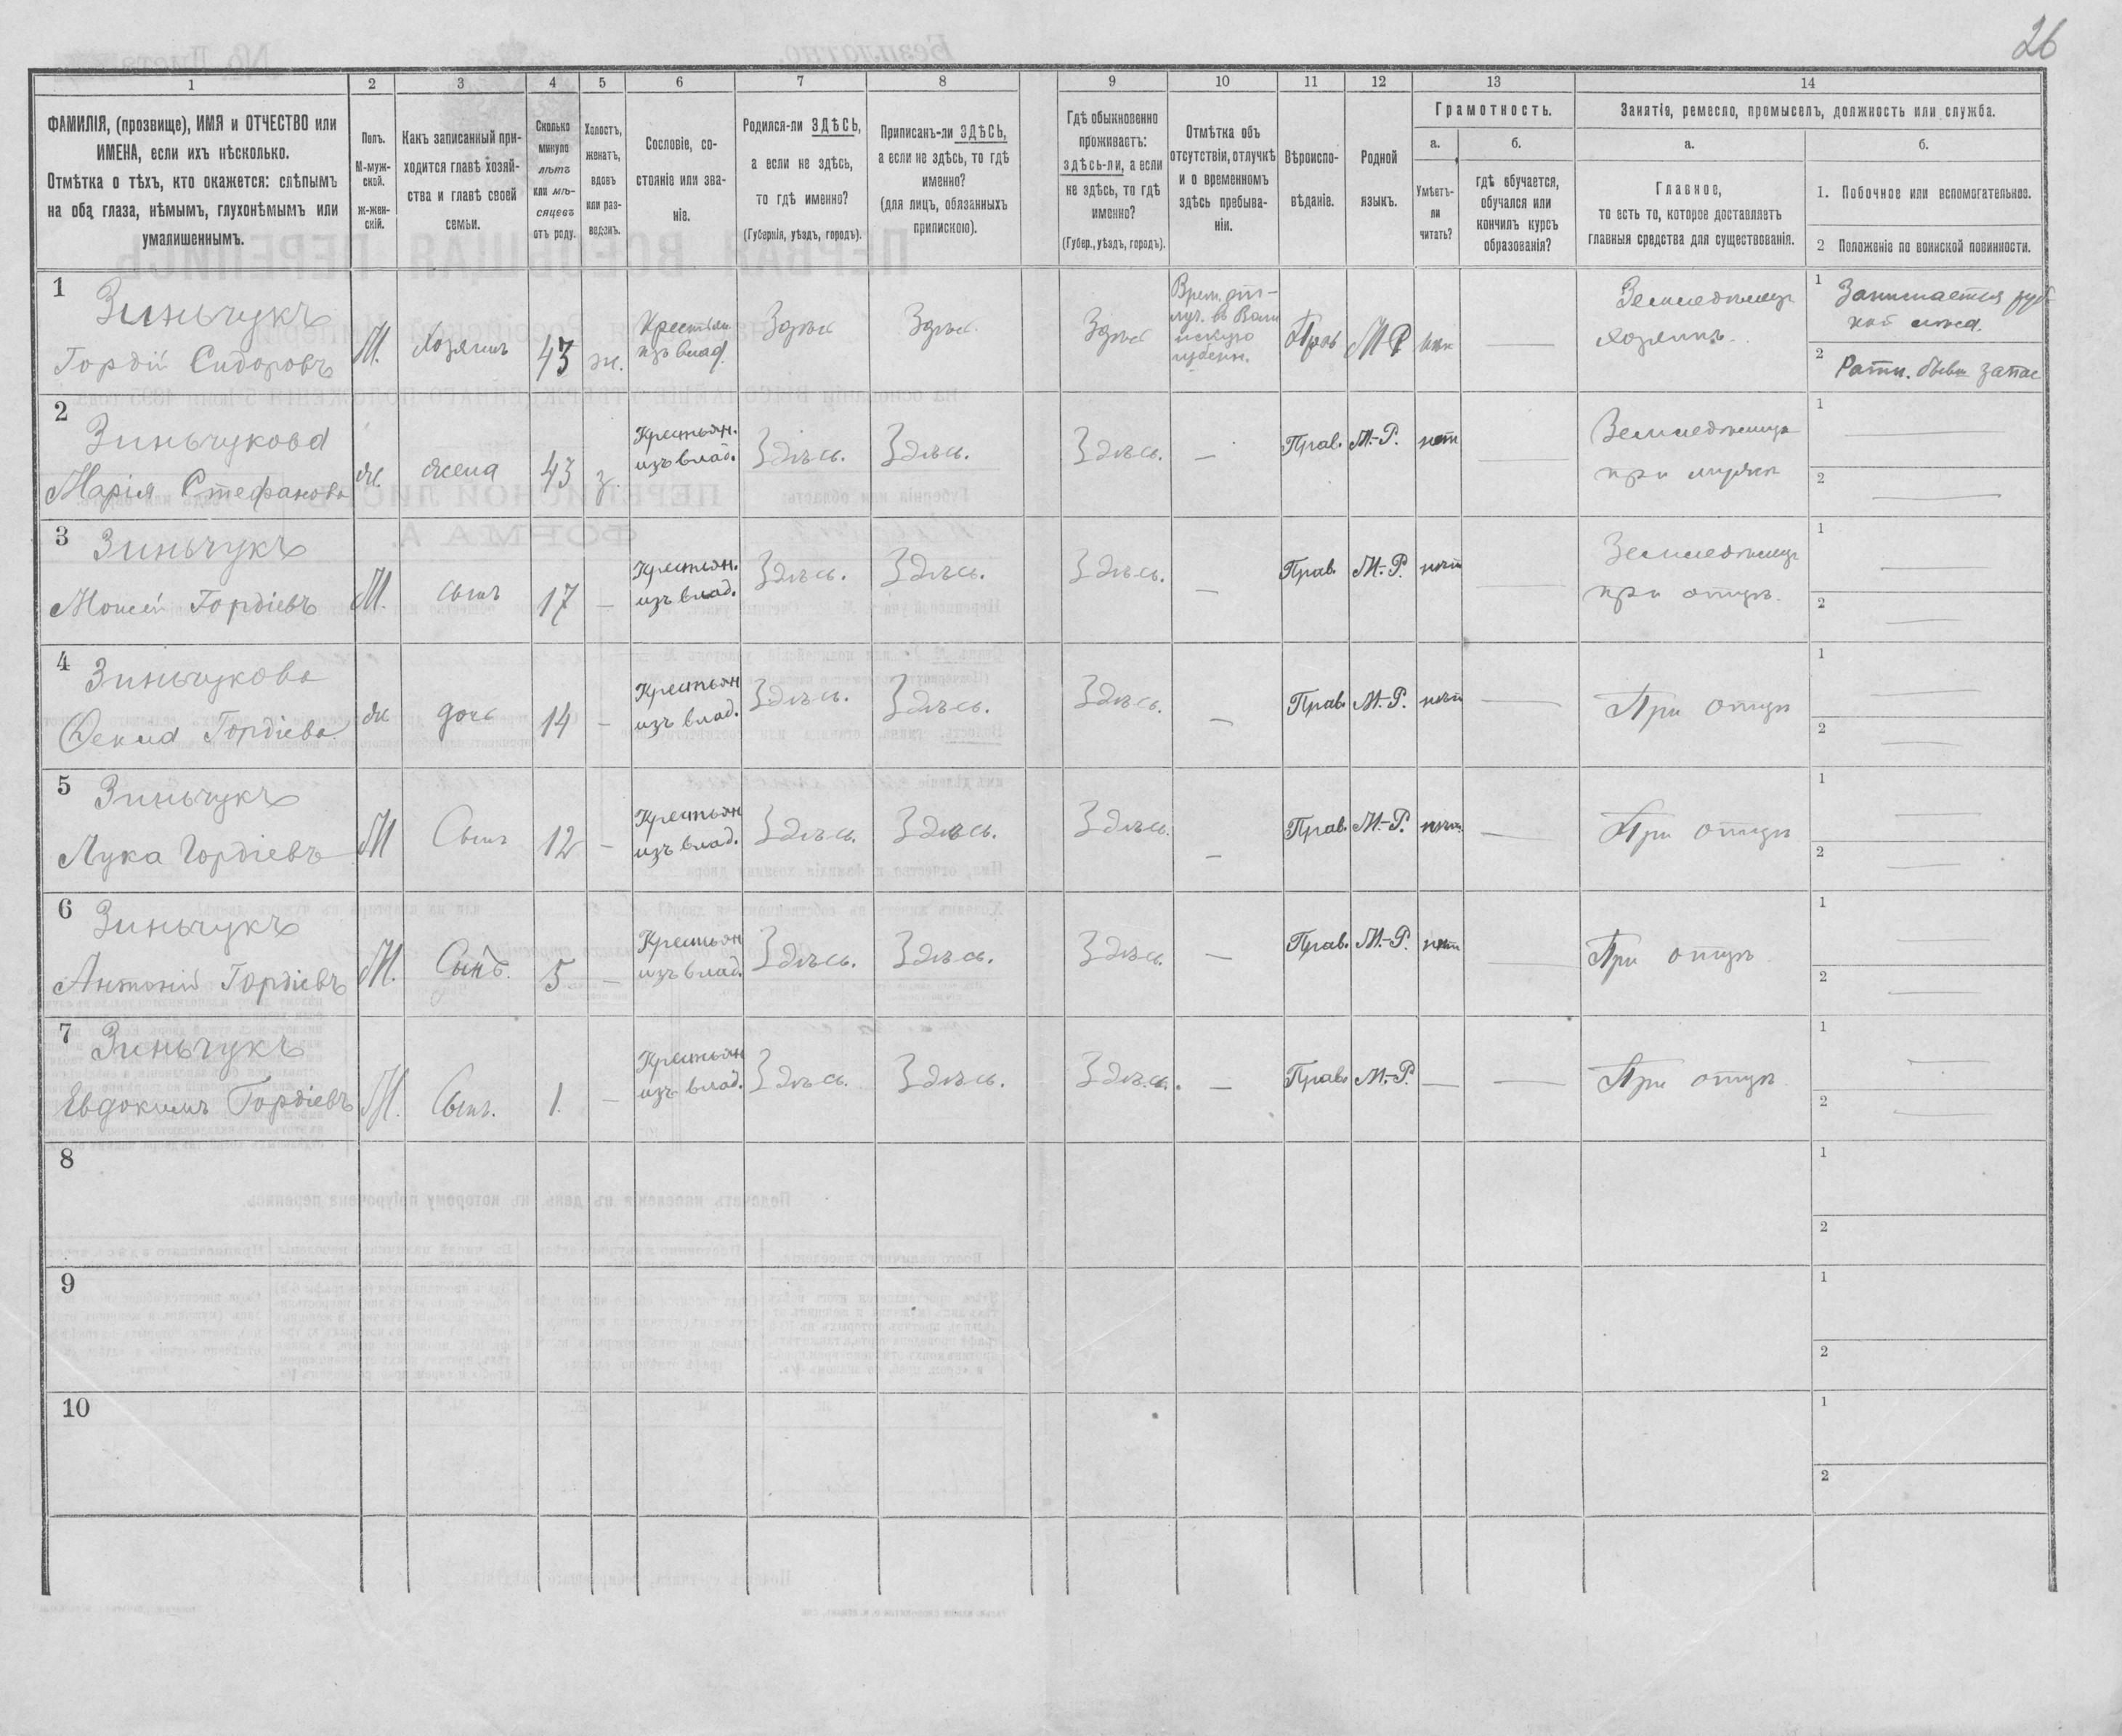 26
1
2
3
4
5
6
7
8
9
10
11
12
13
14
ФАМИЛІЯ, (прозвище), ИМЯ и ОТЧЕСТВО или
ИМЕНА, если ихъ нѣсколько.
Отмѣтка о тѣхъ, кто окажется: слѣпымъ
на оба глаза, нѣмымъ, глухонѣмымъ или
умалишеннымъ.
Полъ.
М-муж-
ской.
ж-жен-
скій.
Какъ записанный при-
ходится главѣ хозяй-
ства и главѣ своей
семьи.
Сколько
минуло
лѣтъ
или мѣ-
сяцевъ
отъ роду.
Холостъ,
женатъ,
вдовъ
или раз-
веденъ.
Сословіе, со-
стояніе или зва-
ніе.
Родился-ли ЗДѢСЬ,
а если не здѣсь,
то гдѣ именно?
(Губернія, уѣздъ, городъ).
Приписанъ-ли ЗДѢСЬ,
а если не здѣсь, то гдѣ
именно?
(для лицъ, обязанныхъ
припискою).
Гдѣ обыкновенно
проживаетъ:
здѣсь-ли, а если
не здѣсь, то гдѣ
именно?
(Губер., уѣздъ, городъ).
Отмѣтка объ
отсутствіи, отлучкѣ
и о временномъ
здѣсь пребыва-
ніи.
Вѣроиспо-
вѣданіе.
Родной
языкъ.
Грамотность.
а.
Умѣетъ-
ли
читать?
б.
гдѣ обучается,
обучался или
кончилъ курсъ
образованія?
Занятія, ремесло, промыселъ, должность или служба.
а.
Главное,
то есть то, которое доставляетъ
главныя средства для существованія.
б.
1. Побочное или вспомогательное.
2 Положеніе по воинской повинности.
1
Зиньчукъ
Гордій Сидоровъ
М.
Хозяинъ
43
ж.
Крестьян
изъ влад.
Здѣсь
Здѣсь
Здѣсь
Врем. от-
луч. въ
губерн.
Прав
М Р
Земледѣлец
хозяинъ.
1 Занимается
2 Ратн. запас
2
Зиньчукова
Марія Стефанова
ж.
жена
43
з.
Крестьян.
изъ влад.
Здѣсь.
Здѣсь.
Здѣсь.
—
Прав.
М.-Р.
нѣт
Земледѣлица
при мужѣ
1
2
3
Зиньчукъ
Мойсей Гордіевъ
М.
сынъ
17
—
Крестьян.
изъ влад.
Здѣсь.
Здѣсь.
Здѣсь.
—
Прав.
М.-Р.
нѣт
Земледѣлец
при отцѣ.
1
2
4
Зиньчукова
Гордіева
ж
дочь
14
—
Крестьян
изъ влад.
Здѣсь.
Здѣсь.
Здѣсь.
—
Прав.
М.-Р.
нѣт
При отцѣ
1
2
5
Зиньчукъ
Лука Гордіевъ
М
Сынъ
12
—
Крестьян
изъ влад.
Здѣсь.
Здѣсь.
Здѣсь.
—
Прав.
М.-Р.
нѣт
При отцѣ
1
2
6
Зиньчукъ
Антоній Гордіевъ
М.
Сынъ.
5
—
Крестьян
изъ влад.
Здѣсь.
Здѣсь.
Здѣсь.
—
Прав.
М.-Р.
нѣт
При отцѣ
1
2
7
Зиньчукъ
Евдокимъ Гордіевъ
М.
Сынъ.
1.
—
Крестьян
изъ влад.
Здѣсь.
Здѣсь.
Здѣсь.
—
Прав.
М.-Р.
—
—
При отцѣ
1
2
8
1
2
9
1
2
10
1
2